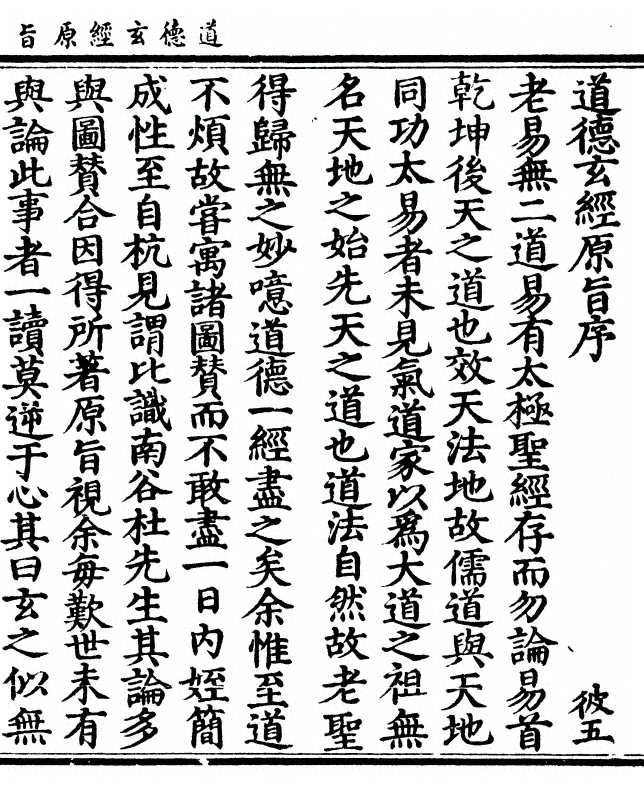 道德玄經原旨
道德玄經原旨序
彼五
老易無二道易有太極聖經存而勿論易首
乾坤後天之道也效天法地故儒道與天地
同功太易者未見氣道家以爲大道之祖無
名天地之始先天之道也道法自然故老聖
得歸無之妙噫道德一經盡之矣余惟至道
不煩故嘗寓諸圖贊而不敢盡一日內姪簡
成性至自杭見謂比識南谷杜先生其論多
與圖贊合因得所著原旨視余每歎世未有
與論此事者一讀莫逆于心其曰玄之似無